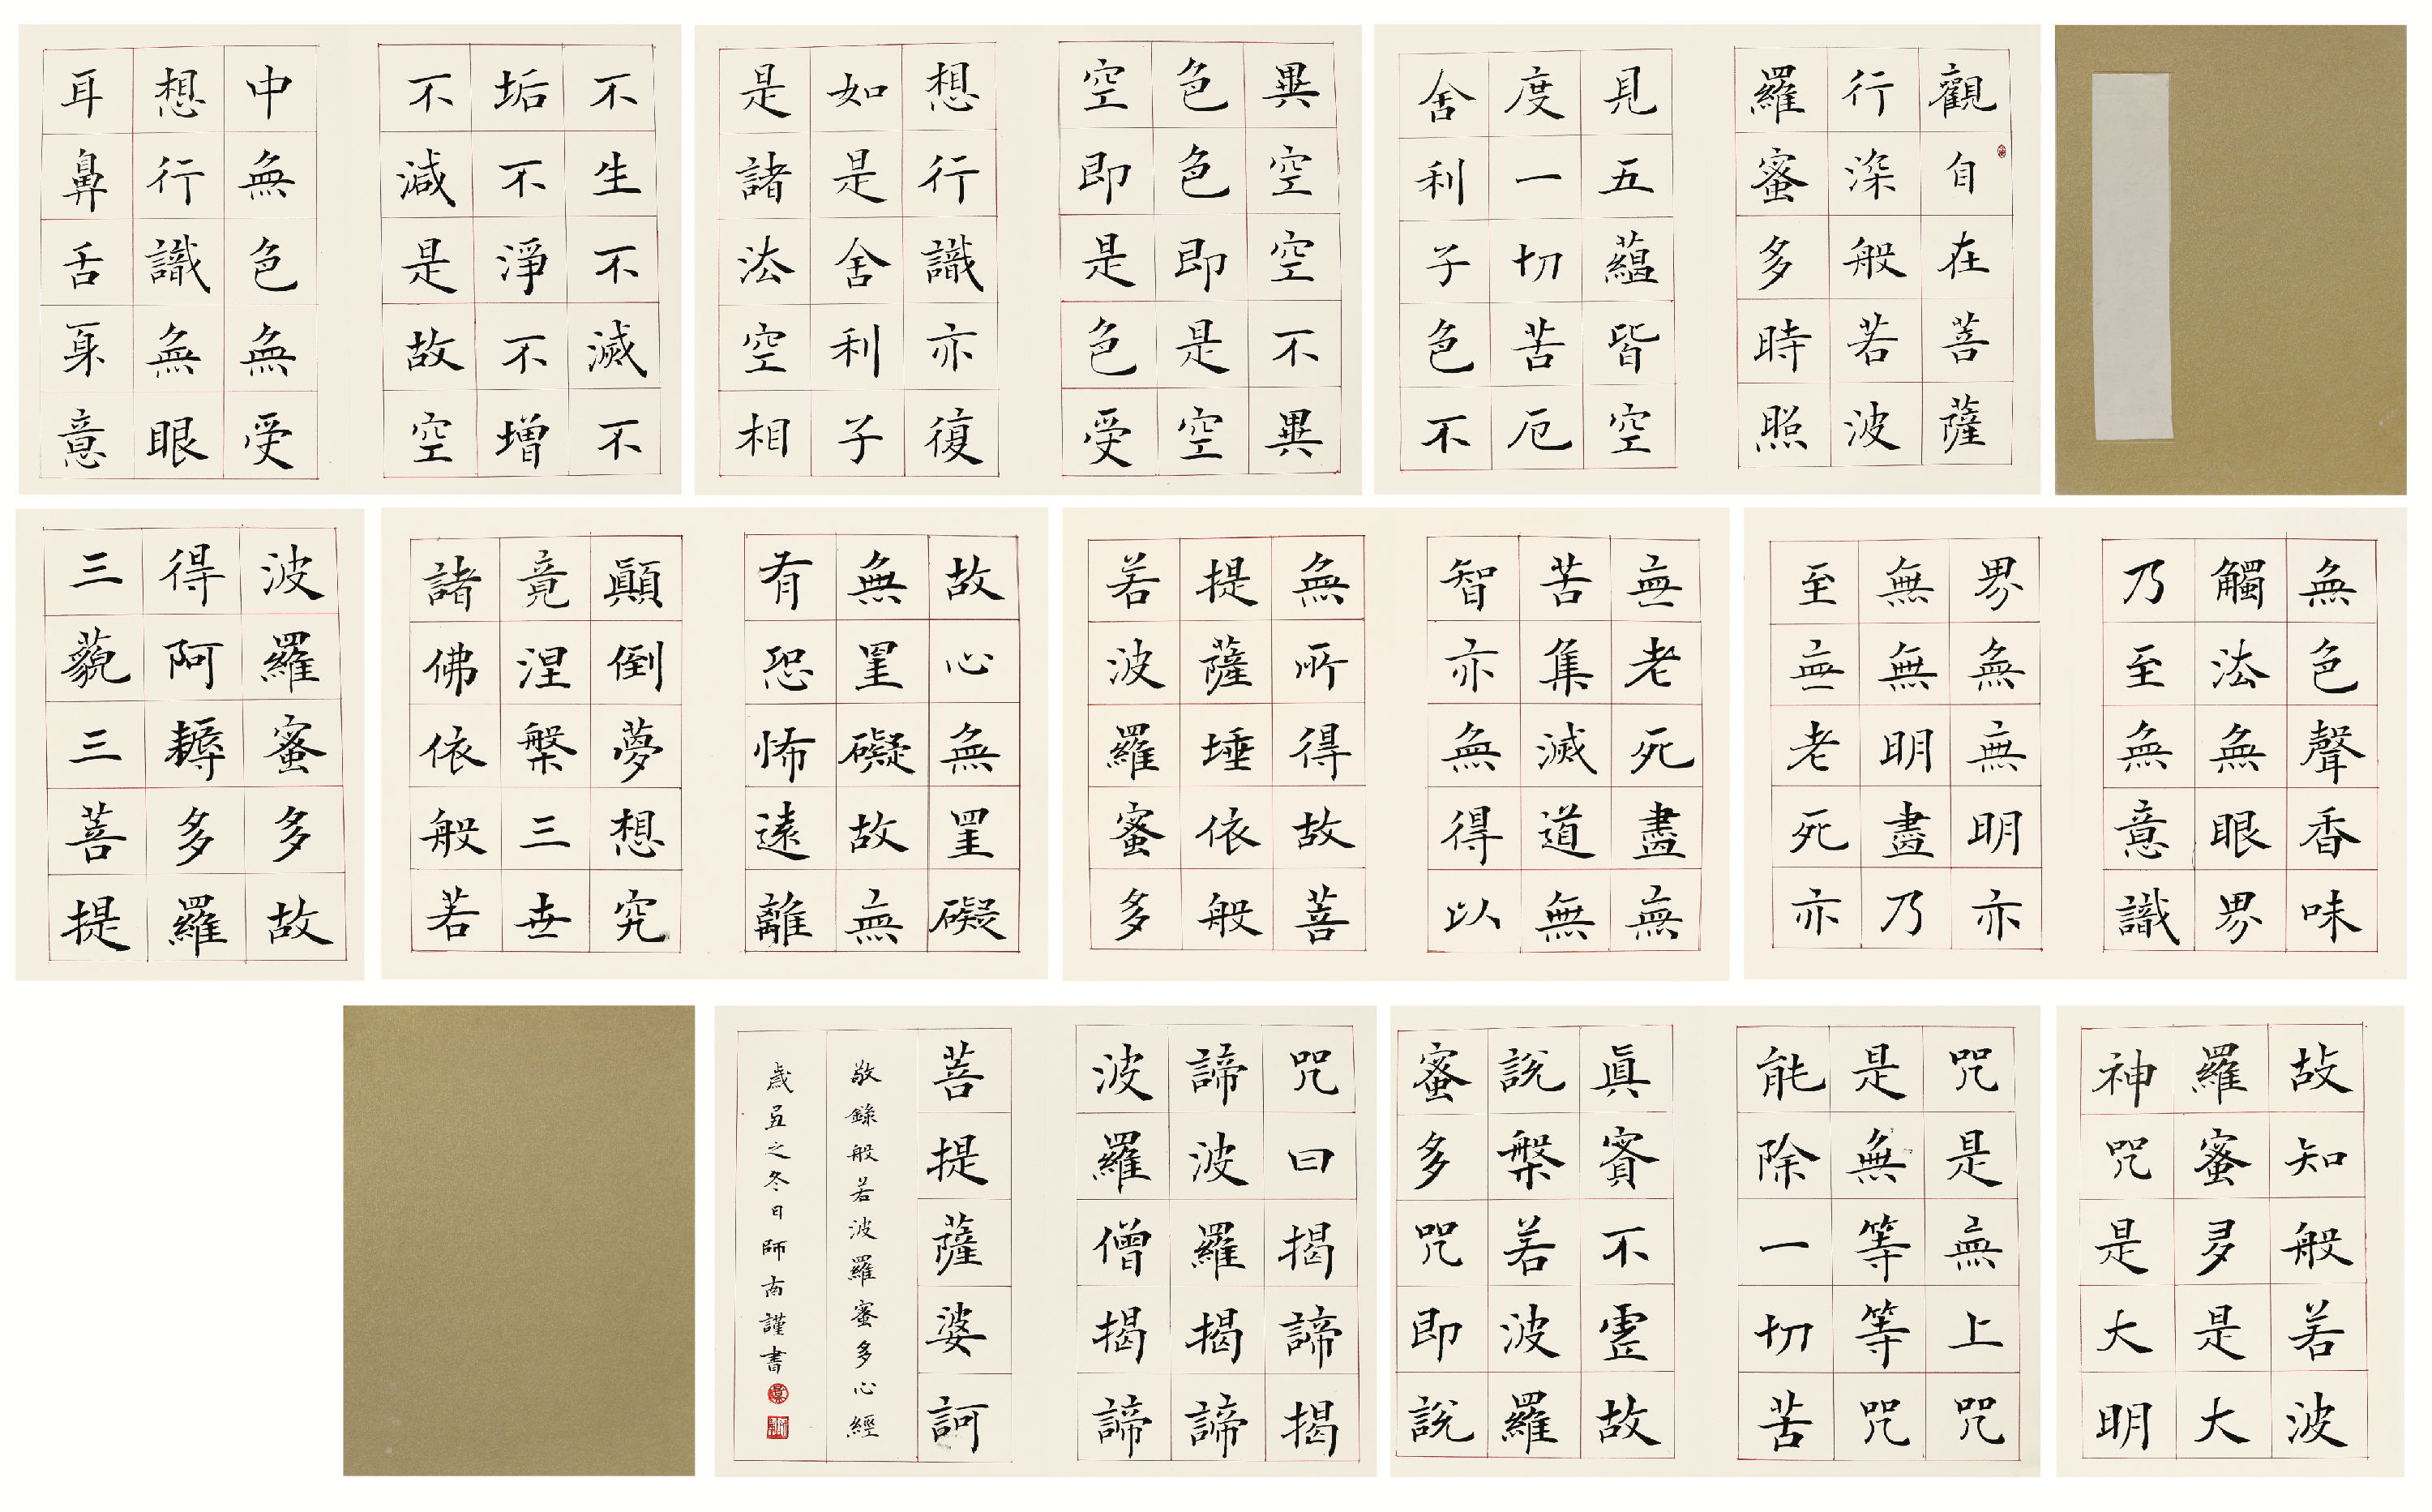 觀自在菩薩
行深般若波
羅蜜多時照
見五蘊皆空
度一切苦厄
舍利子色不
異空空不異
色色即是空
空即是色受
想行識亦復
如是舍利子
是諸法空相
不生不滅不
垢不淨不增
不減是故空
中無色無受
想行識無眼
耳鼻舌身意
無色聲香味
觸法無眼界
乃至無意識
界無無明亦
無無明盡乃
至無老死亦
無老死盡無
苦集滅道無
智亦無得以
無所得故菩
提薩埵依般
若波羅蜜多
故心無罣礙
無罣礙故無
有恐怖遠離
顛倒夢想究
竟涅槃三世
諸佛依般若
波羅蜜多故
得阿耨多羅
三藐三菩提
故知般若波
羅蜜多是大
神咒是大明
咒是無上咒
是無等等咒
能除一切苦
眞實不虛故
說槃若波羅
蜜多咒即說
咒曰揭諦揭
諦波羅揭諦
波羅僧揭諦
菩提薩婆訶
敬錄般若波羅蜜多心經
歲丑之冬日師謹書